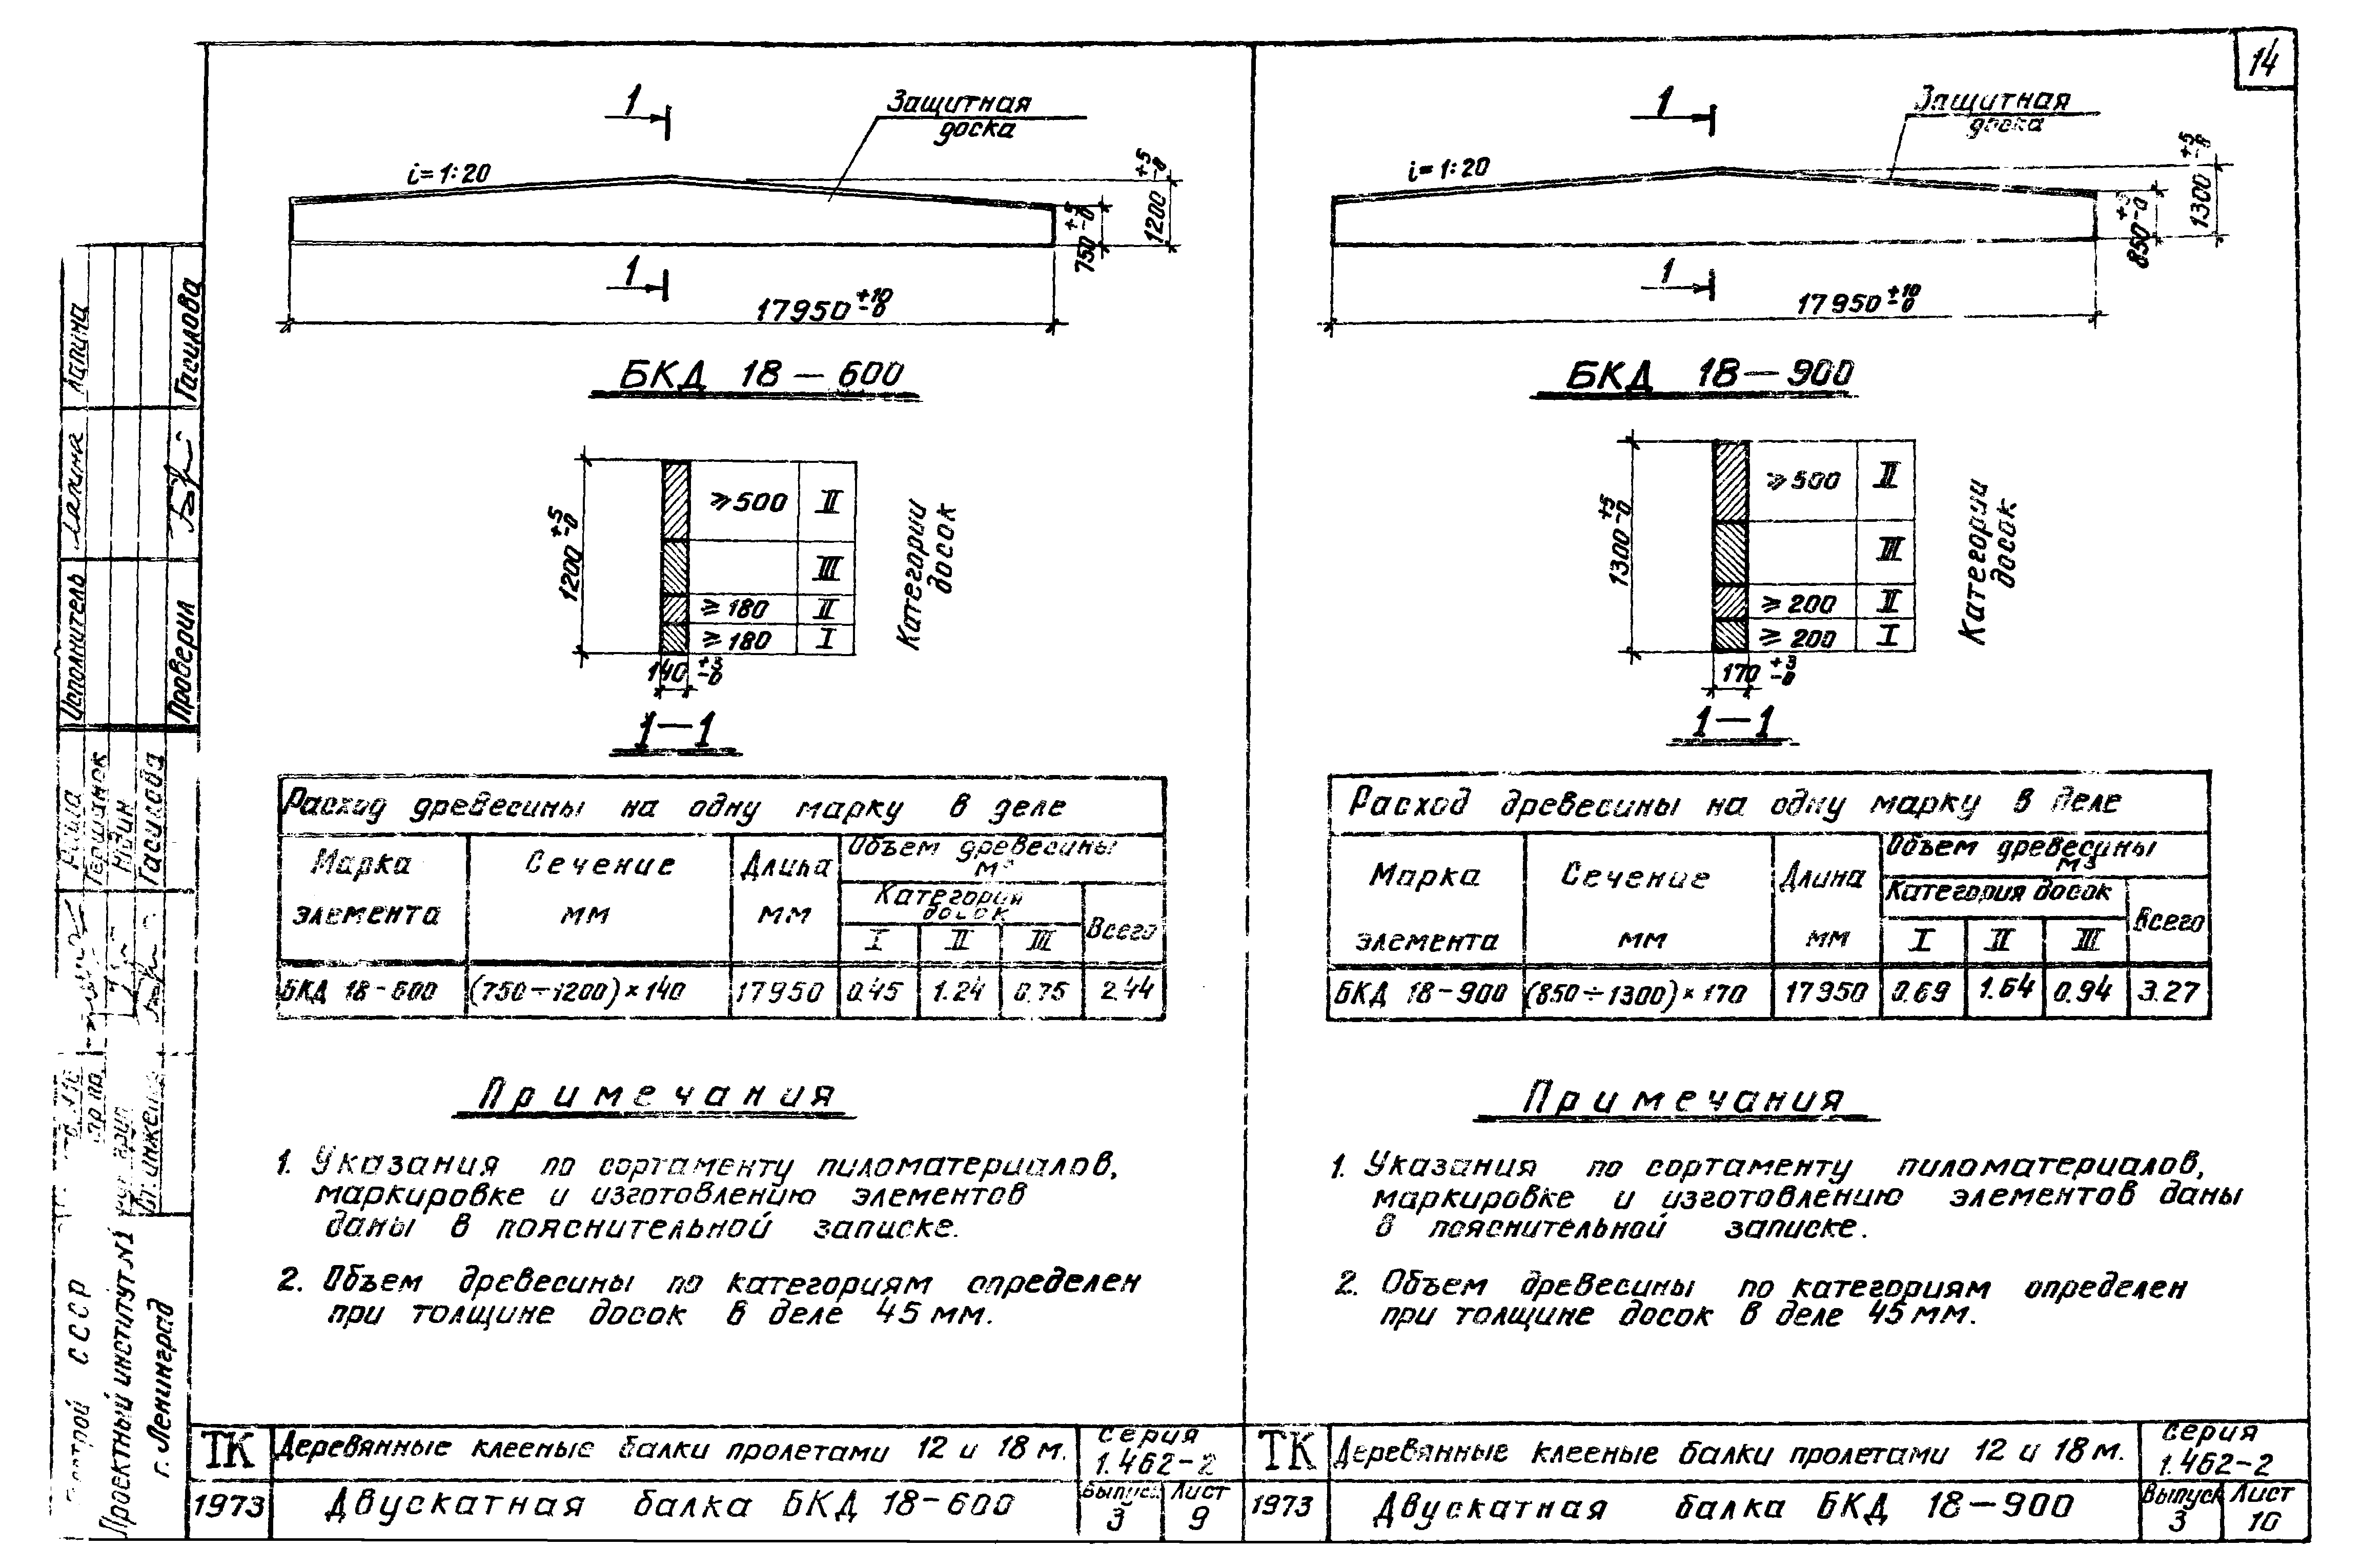 14
1
Защитная
доска
i=1:20
1200 +5 -0
750 +5 -0
1
17950 +10 -0
БКД 18-600
≥500 II
III
≥180 II
≥180 I
1200 +5 -0
140 +3 -0
Категории
досок
1-1
Расход древесины на одну марку в деле
Марка элемента
Сечение мм
Длина мм
Объем древесины м³
Категория досок
Всего
I II III
БКД 18-600 (750÷1200)×140 17950 0.45 1.24 0.75 2.44
Примечания
1. Указания по сортаменту пиломатериалов,
маркировке и изготовлению элементов
даны в пояснительной записке.
2. Объем древесины по категориям определен
при толщине досок в деле 45 мм.
ТК
1973
Деревянные клееные балки пролетами 12 и 18 м.
Двускатная балка БКД 18-600
серия
1.462-2
Выпуск
3
Лист
9
1
Защитная
доска
i=1:20
1300 +5 -0
850 +5 -0
1
17950 +10 -0
БКД 18-900
≥500 II
III
≥200 II
≥200 I
1300 +5 -0
170 +3 -0
Категории
досок
1-1
Расход древесины на одну марку в деле
Марка элемента
Сечение мм
Длина мм
Объем древесины м3
Категория досок
Всего
I II III
БКД 18-900 (850÷1300)×170 17950 0.69 1.64 0.94 3.27
Примечания
1. Указания по сортаменту пиломатериалов,
маркировке и изготовлению элементов даны
в пояснительной записке.
2. Объем древесины по категориям определен
при толщине досок в деле 45 мм.
ТК
1973
Деревянные клееные балки пролетами 12 и 18 м.
Двускатная балка БКД 18-900
серия
1.462-2
Выпуск
3
Лист
10
Исполнитель Лапина
Проверил Гасилова
Гасилова
СССР
Проектный институт №1
г. Ленинград